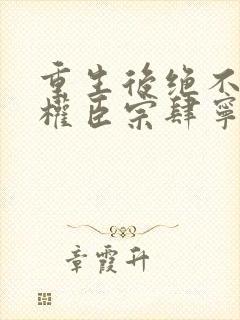 重生後绝不
權臣宗肆寧
章霞升